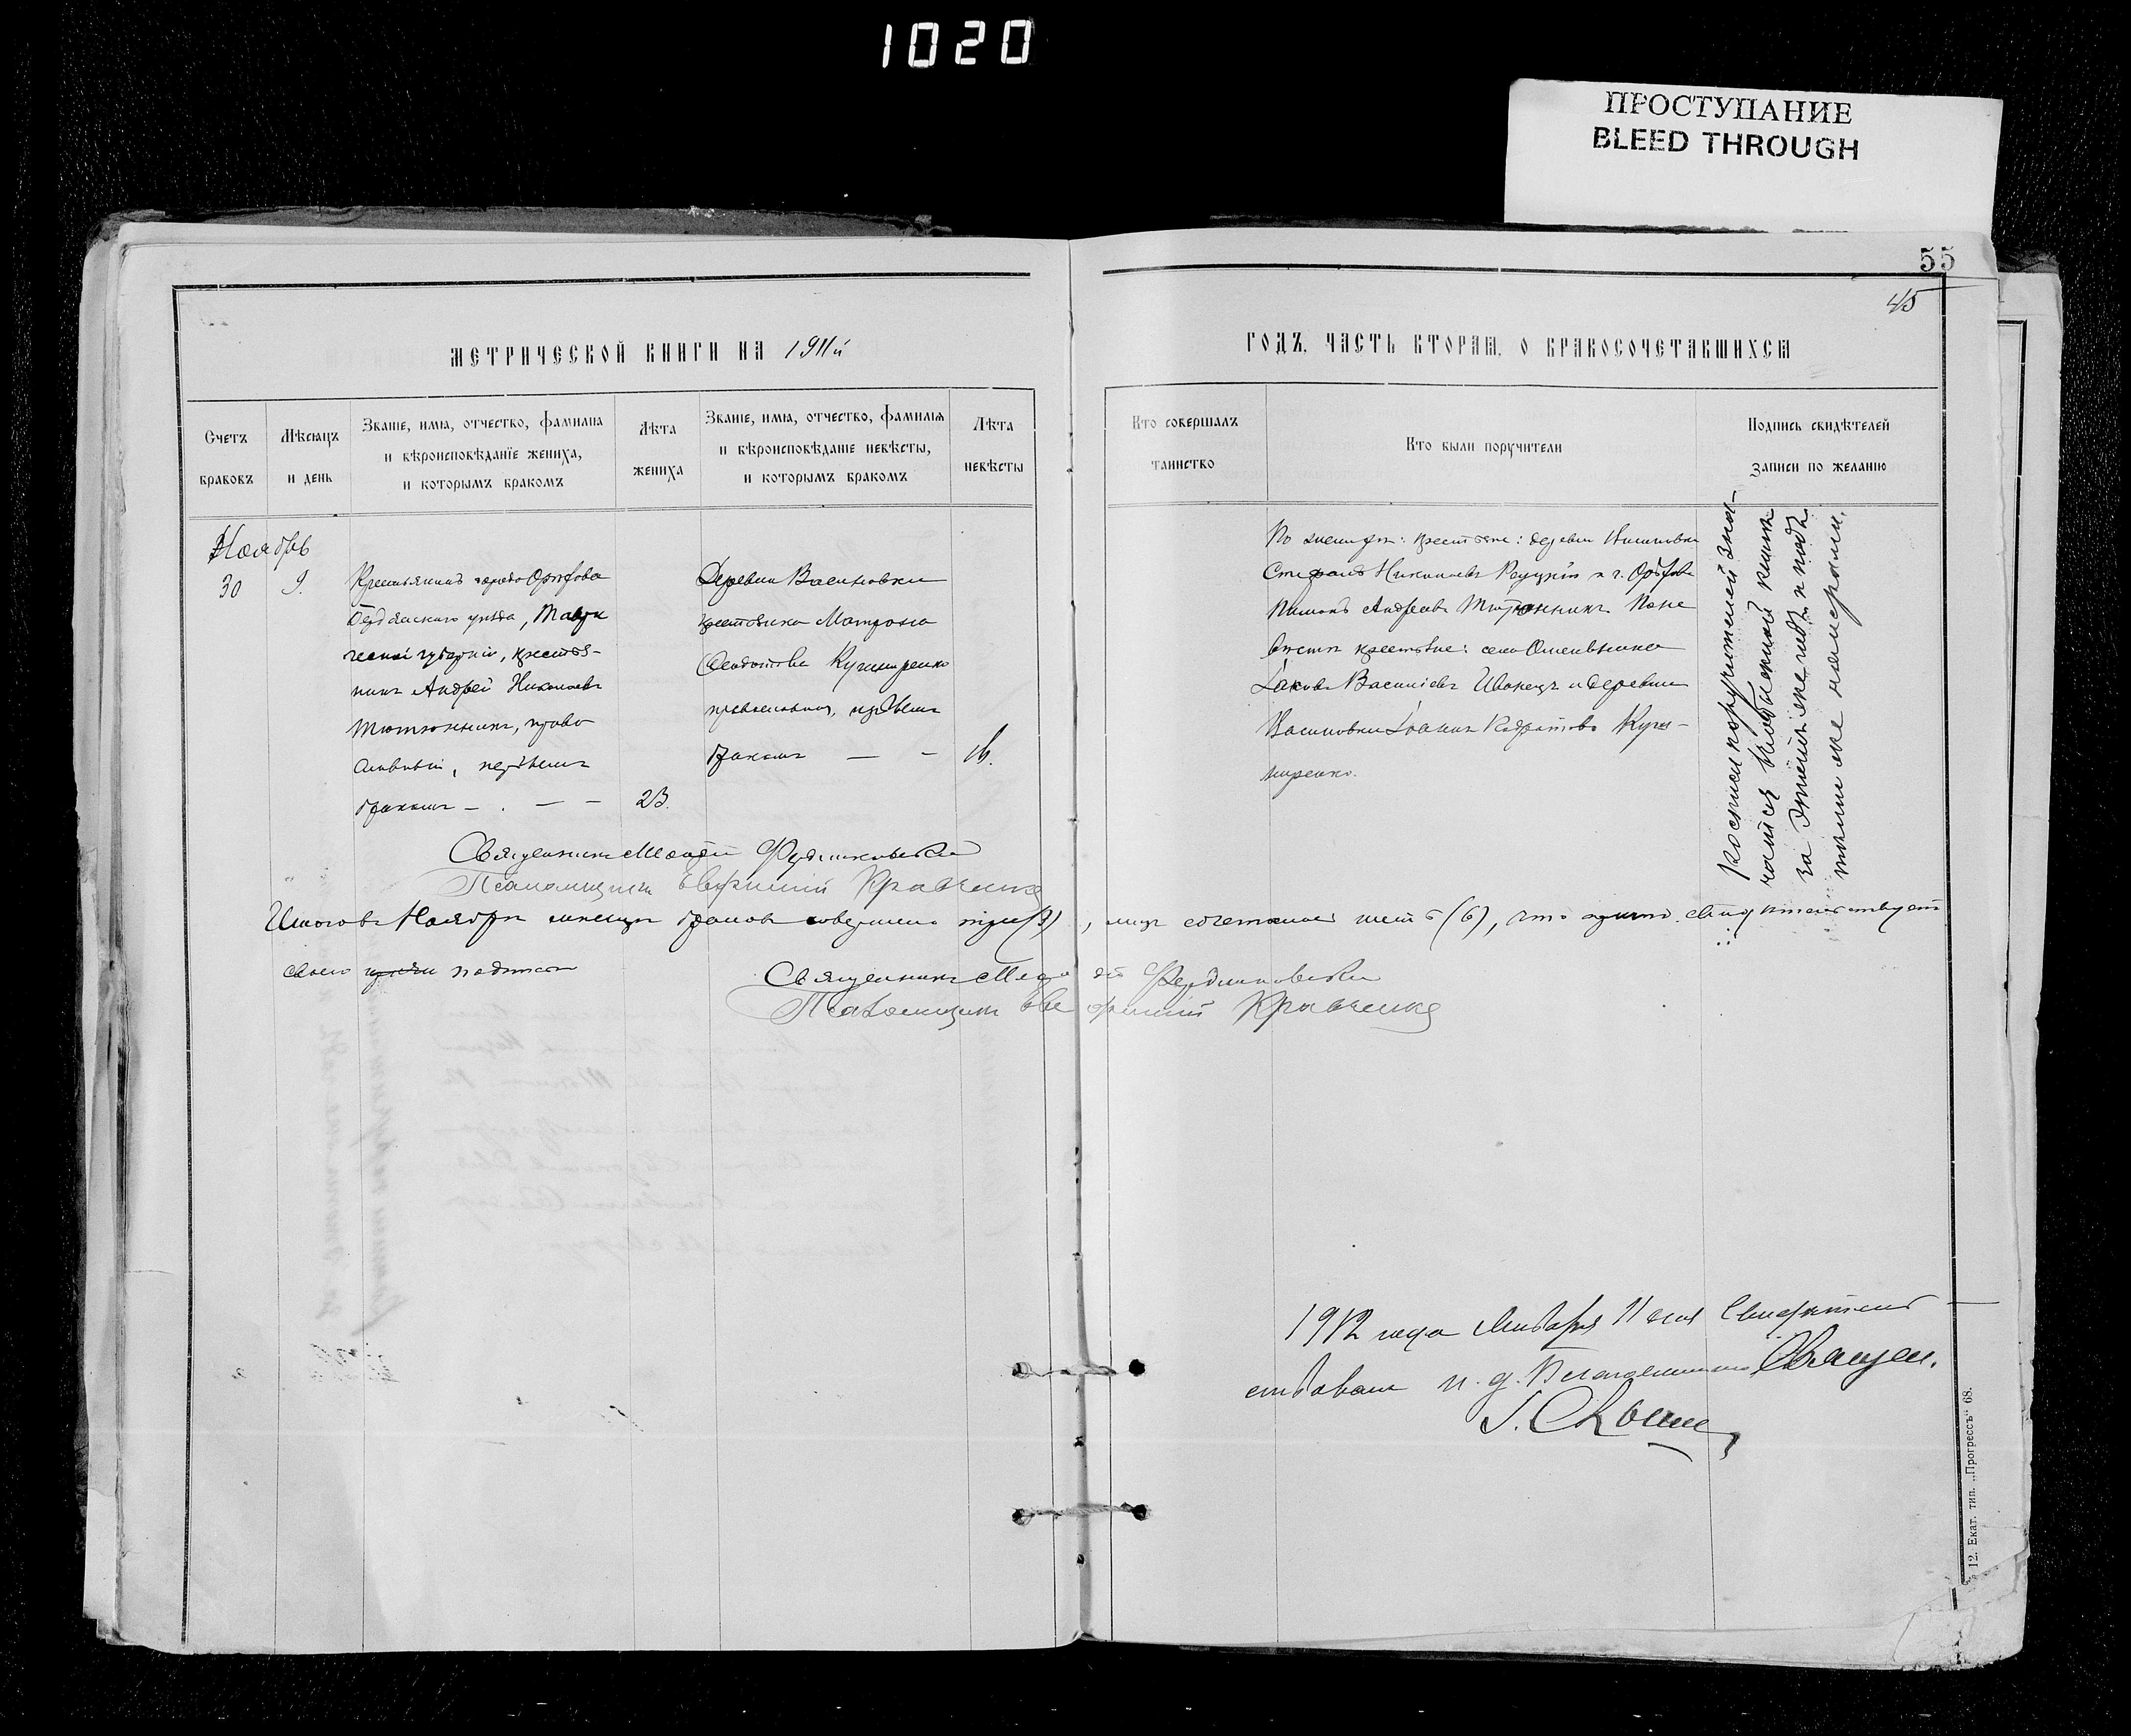 1020
ПРОСТУПАНИЕ
BLEED THROUGH
55
45
МЕТРИЧЕСКОЙ КНИГИ НА 1911й
ГОДЪ, ЧАСТЬ ВТОРАЯ, О БРАКОСОЧЕТАВШИХСЯ
Счетъ
браковъ
Мѣсяцъ
и день
Званіе, имя, отчество, фамилия
и вѣроисповѣданіе жениха,
и которымъ бракомъ
Лѣта
жениха
Званіе, имя, отчество, фамилія
и вѣроисповѣданіе невѣсты,
и которымъ бракомъ
Лѣта
невѣсты
Кто совершалъ
таинство
Кто были поручители
Подпись свидѣтелей
записи по желанію
Ноябрь
30
9.
Крестьянинъ города Орѣхова
Бердянскаго уѣзда, Таври
ческой губерніи, крестья-
нинъ Андрей Николаевъ
Тютюнникъ, право
славный, первымъ
бракомъ — . — —
23.
Деревни Васиновки
крестьянка Матрона
Кушниренко
православная, первымъ
бракомъ — —
По женихѣ: крестьяне: деревни
Стефанъ Николаевъ и г. Орѣхова
Пименъ Андреевъ Тютюнникъ По не
вѣстѣ крестьяне: села
Іаковъ Васильевъ Швецъ и деревни
Васиновки Іоаннъ Куш-
ниренко.
Росписи поручителей
въ обыскной книгѣ
за этотъ же годъ и подъ
тѣми же номерами.
Священникъ
Псаломщикъ Евфимій Кравченко
Итого въ Ноябрѣ мѣсяцѣ браковъ совершено три (3), лицъ сочетанныхъ шесть (6), что свидѣтельствуемъ
своею подписью
Священникъ
Псаломщикъ Евфимій Кравченко
1912 года Января 11 дня Свидѣтель-
ствовалъ и. д. Благочиннаго Священ.
I.
12. Екат. тип. „Прогрессъ“ 68.